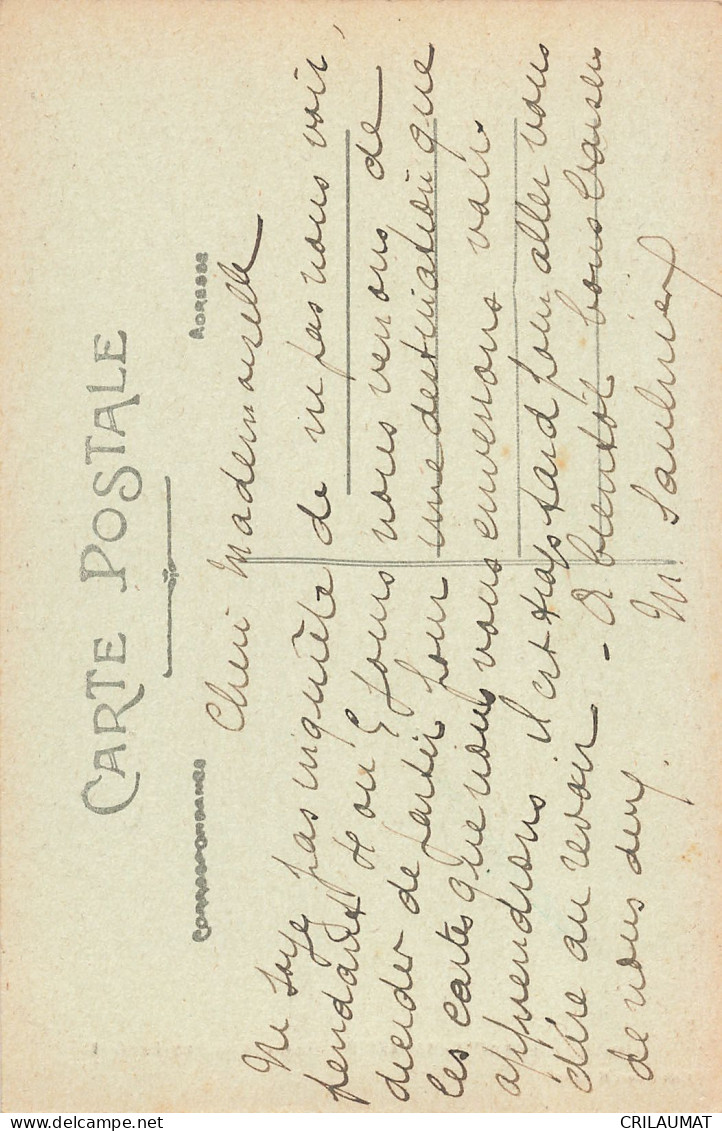 CARTE POSTALE
CORRESPONDANCE
ADRESSE
Cheri Mademoiselle
Ne soye pas inquiète de ne pas nous voir,
pendant 4 ou 5 jours nous venons de
dicider de partir pour une destination que
les cartes que nous vous enverrons vous
apprendrons. il est trop tard pour aller vous
dire au revoir - A bientôt bons baisers
de nous deux.
M. Saulnier
CRILAUMAT